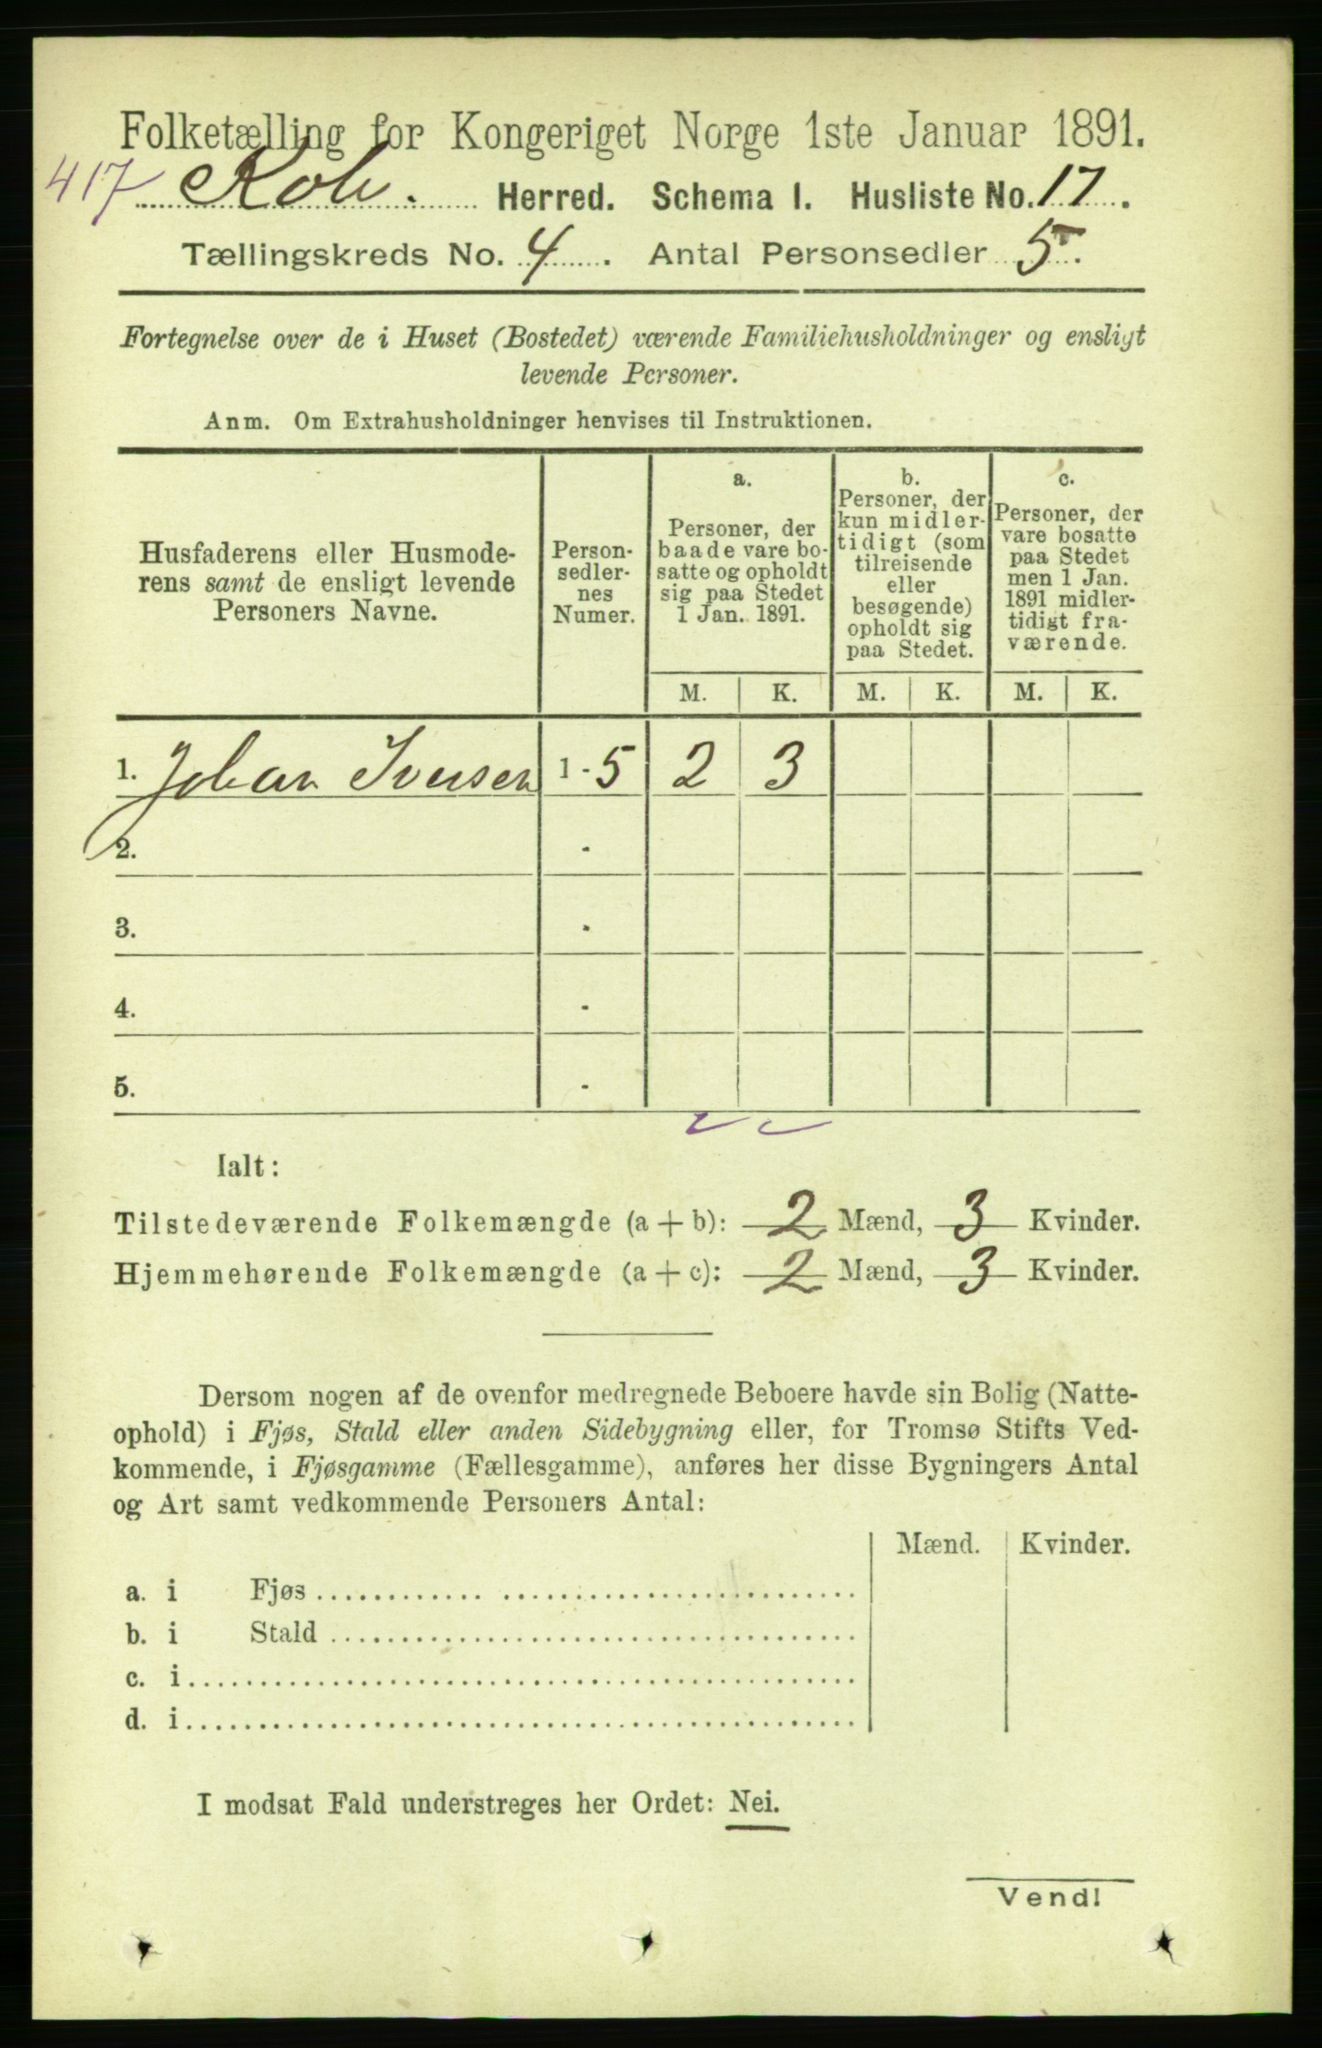 Folketælling for Kongeriget Norge 1ste Januar 1891.
417 Rolv. Herred. Schema I. Husliste No. 17.
Tællingskreds No. 4. Antal Personsedler 5.
Fortegnelse over de i Huset (Bostedet) værende Familiehusholdninger og ensligt
levende Personer.
Anm. Om Extrahusholdninger henvises til Instruktionen.
Husfaderens eller Husmode-
rens samt de ensligt levende
Personers Navne.
Person-
sedler-
nes
Numer.
a.
Personer, der
baade vare bo-
satte og opholdt
sig paa Stedet
1 Jan. 1891.
b.
Personer, der
kun midler-
tidigt (som
tilreisende
eller
besøgende)
opholdt sig
paa Stedet.
c.
Personer, der
vare bosatte
paa Stedet
men 1 Jan.
1891 midler-
tidigt fra-
værende.
M. K. M. K. M. K.
1. Johan Iversen 1 - 5 2 3
2. -
3. -
4. -
5. -
Ialt:
Tilstedeværende Folkemængde (a + b): 2 Mænd, 3 Kvinder.
Hjemmehørende Folkemængde (a + c): 2 Mænd, 3 Kvinder.
Dersom nogen af de ovenfor medregnede Beboere havde sin Bolig (Natte-
ophold) i Fjøs, Stald eller anden Sidebygning eller, for Tromsø Stifts Ved-
kommende, i Fjøsgamme (Fællesgamme), anføres her disse Bygningers Antal
og Art samt vedkommende Personers Antal:
Mænd. Kvinder.
a. i Fjøs
b. i Stald
c. i
d. i
I modsat Fald understreges her Ordet: Nei.
Vend!